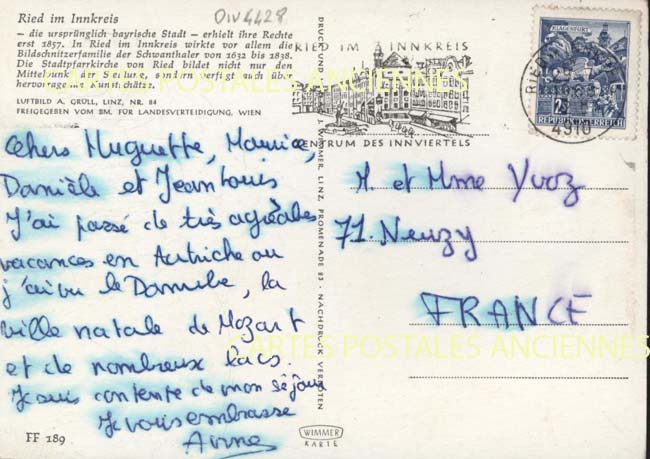 Ried im Innkreis
DIV 4428
— die ursprünglich bayrische Stadt — erhielt ihre Rechte
erst 1857. In Ried im Innkreis wirkte vor allem die
Bildschnitzerfamilie der Schwanthaler von 1632 bis 1838.
Die Stadtpfarrkirche von Ried bildet nicht nur den
Mittelpunkt der Siedlung, sondern verfügt auch über
hervorragende Kunstschätze.
LUFTBILD A. GRÜLL, LINZ, NR. 84
FREIGEGEBEN VOM BM. FÜR LANDESVERTEIDIGUNG, WIEN
CARTES POSTALES ANCIENNES
chers Huguette, Maurice,
Danièle et Jean Louis
J'ai passé de très agréables
vacances en Autriche où
j'ai vu le Danube, la
ville natale de Mozart
et de nombreux lacs.
Je suis contente de mon séjour
Je vous embrasse
Anne
FF 189
J. WIMMER, LINZ, PROMENADE 23 · NACHDRUCK VERBOTEN
WIMMER
KARTE
RIED IM INNKREIS
ZENTRUM DES INNVIERTELS
RIED
4910
KLAGENFURT
2S
REPUBLIK ÖSTERREICH
M. et Mme Yvoz
71. Neuzy
FRANCE
CARTES POSTALES ANCIENNES